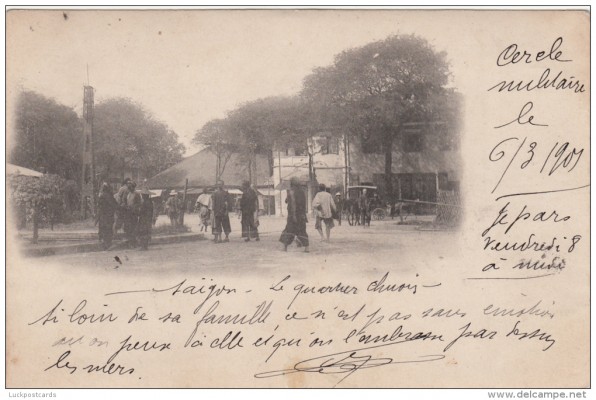 Cercle
militaire
le
6/3 1901
Je pars
vendredi 8
à midi
Saïgon - Le quartier chinois
si loin de sa famille ce n'est pas sans émotion
on pense à elle et qu'on l'embrasse par dessus
les mers.
Luckpostcards
© delcampe.net